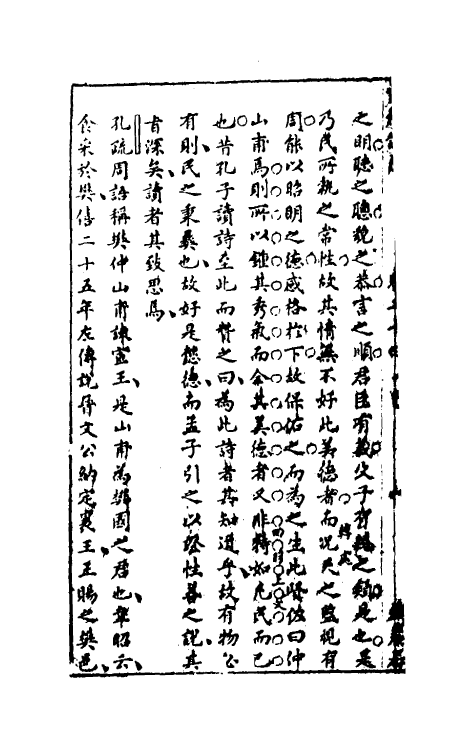 之明聽之聰貌之恭言之順君臣有義父子有親之類是也是
乃民所執之常性故其情無不好此美德者而況天之監視有
周能以昭明之德感格於下故保佑之而為之生此賢佐曰仲
山甫焉則所以鍾其秀氣而全其美德者又非特如凡民而已
也昔孔子讀詩至此而贊之曰為此詩者其知道乎故有物必
有則民之秉彝也故好是懿德而孟子引之以證性善之說其
旨深矣讀者其致思焉
孔疏周語稱樊仲山甫諫宣王是山甫為樊國之君也韋昭云
食采於樊僖二十五年左傳說晉文公納定襄王王賜之樊邑